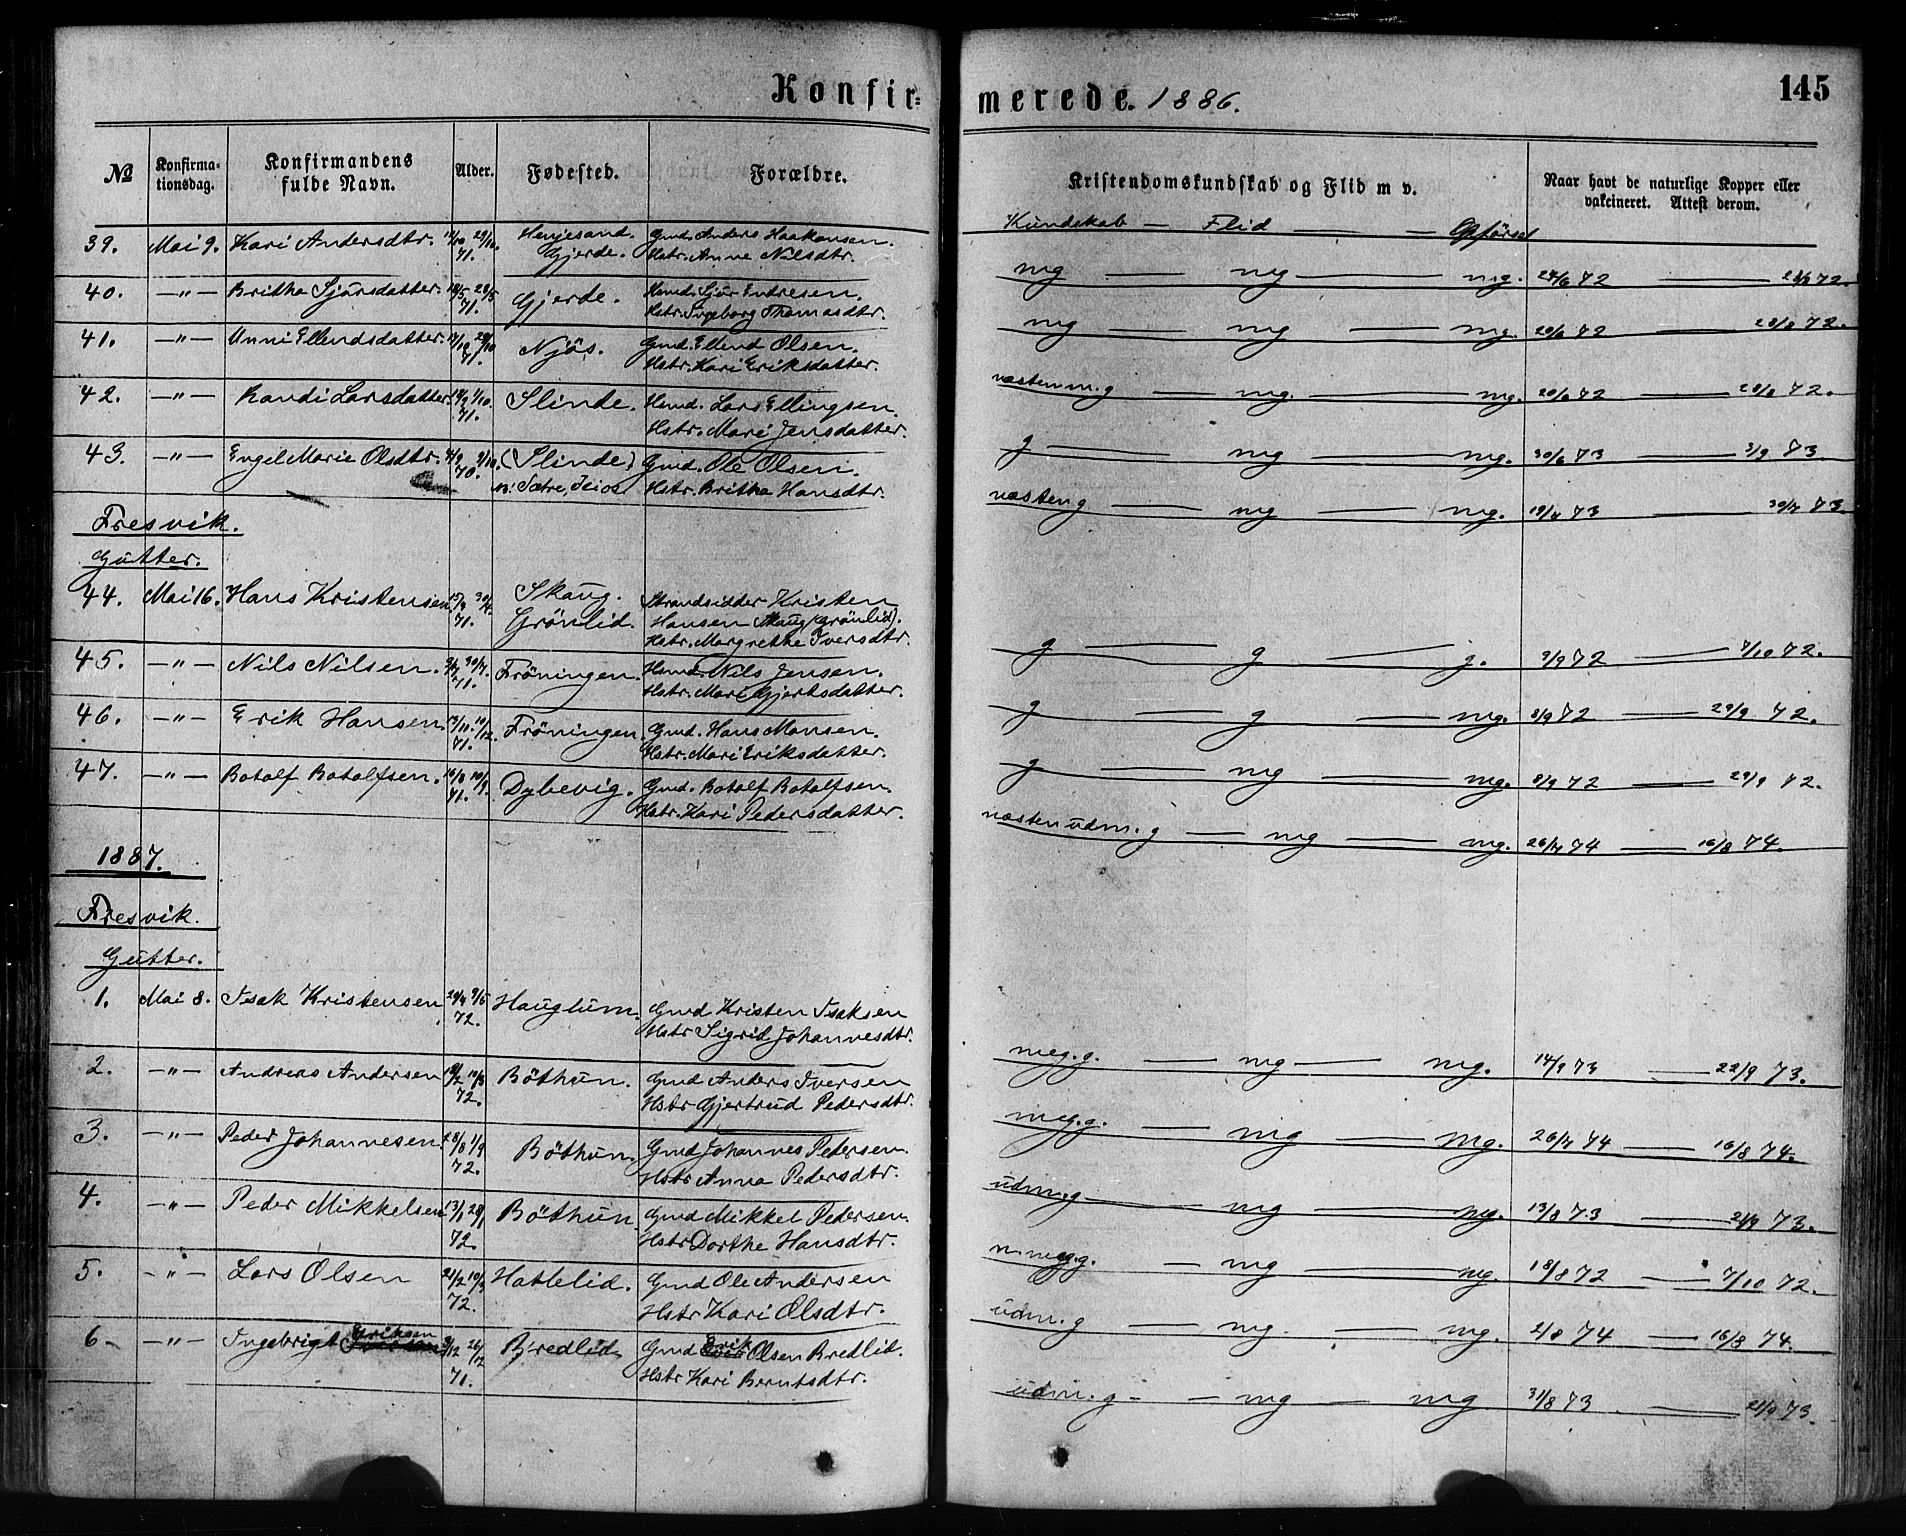 Konfir-
merede. 1886.
145
№ Konfirma-tionsdag. Konfirmandens fulde Navn. Alder. Fødested. Forældre. Kristendomskundskab og Flid m v. Naar havt de naturlige Kopper eller vakcineret. Attest derom.
Kundskab — Flid — — Opförsel
39. Mai 9. Kari Andersdtr. 71. Henjesand. Gmd. Anders Haakonsen.
Gjerde. Hstr. Anne Nilsdtr.
mg — mg — mg. 24/6 72 —
40. —"— Britha Sjursdatter. 71. Gjerde. Hmd. Sjur Entresen.
Hstr. Ingeborg Thomasdtr.
mg — mg — mg. 20/6 72 — 28/8 72.
41. —"— Unni Ellendsdatter. 71. Njös. Gmd. Ellend Olsen.
Hstr. Kari Eriksdatter.
næsten m.g — mg. — mg. 20/6 72 — 28/8 72.
42. —"— Randi Larsdatter. 71. Slinde. Hmd. Lars Ellingsen.
Hstr. Mari Jensdatter.
g — mg — mg. 30/6 73 — 3/9 73.
43. —"— Engel Marie Olsdtr. 70. (Slinde) Gmd. Ole Olsen.
Hstr. Britha Hansdtr.
næsten g — mg — mg. 73 — 73.
Fresvik.
Gutter.
44. Mai 16. Hans Kristensen 71. Skaug. Strandsidder Kristen
Grönlid. Hansen Skaug (Grönlid).
Hstr. Margrethe Iversdtr.
g — g — g. 3/9 72 — 7/10 72.
45. —"— Nils Nilsen. 71. Fröningen. Hmd. Nils Jensen.
Hstr. Mari Gjertsdatter.
g — g — mg. 8/9 72 — 29/9 72.
46. —"— Erik Hansen. 13/11. 10/12. 71. Fröningen. Gmd. Hans Monsen.
Hstr. Mari Eriksdatter.
g — mg — mg. 8/9 72 — 29/9 72.
47. —"— Botolf Botolfsen. 71. Dybevig. Gmd. Botolf Botolfsen.
Hstr. Kari Pedersdatter.
næsten udm. g — mg — mg. 26/7 74 — 16/8 74.
1887.
Fresvik.
Gutter.
1. Mai 8. Isak Kristensen 29/4 9/5 72. Hauglum. Gmd Kristen Isaksen
Hstr Sigrid Johannesdtr.
meg. g. — mg — mg. 14/9 73 — 22/9 73.
2. —"— Andreas Andersen 72. Böthun. Gmd Anders Iversen
Hstr Gjertrud Pedersdtr.
meg. g. — mg — mg. 26/7 74 — 16/8 74.
3. —"— Peder Johannesen. 28/8 1/9 72. Böthun. Gmd Johannes Pedersen.
Hstr Anna Pedersdtr.
udm. g — mg — mg. 13/8 73 — 21/9 73.
4. —"— Peder Mikkelsen 13/1 28/1 72. Böthun. Gmd Mikkel Pedersen.
Hstr Dorthe Hansdtr.
n. meg. g. — mg — mg. 18/8 72 — 7/10 72.
5. —"— Lars Olsen 21/2 10/3 72. Hattelid. Gmd Ole Andersen
Hstr Kari Olsdtr.
udm. g — mg. — mg. 2/8 74 — 16/8 74.
6 —"— Ingebrigt Eriksen 26/12 71. Bredlid Gmd Erik Olsen Bredlid.
Hstr Kari Berntsdtr.
udm. g — mg — mg 31/8 73 — 21/9 73.